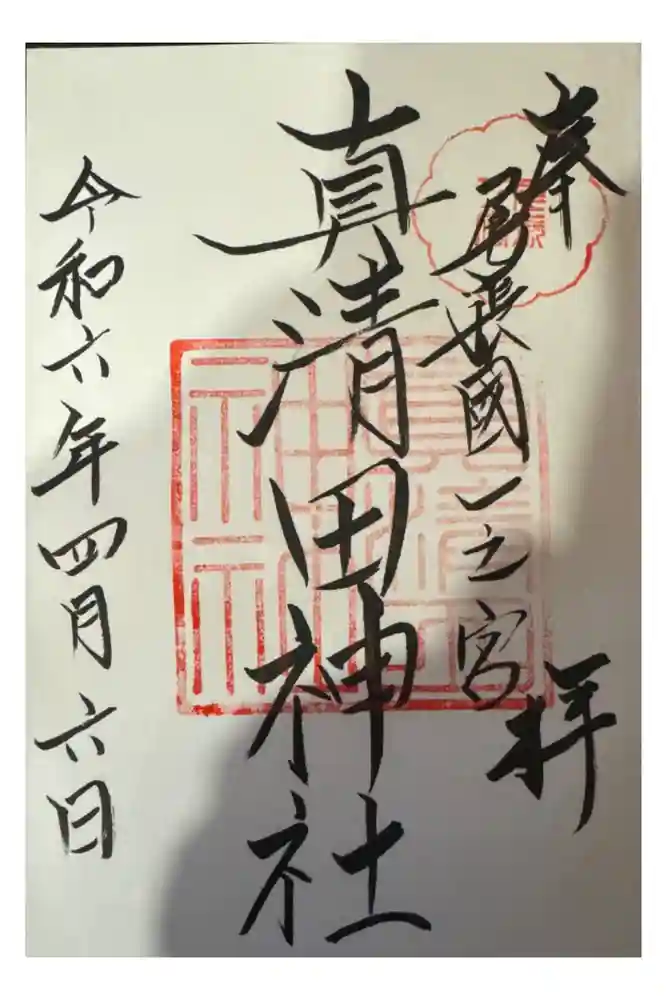 奉拝
尾張國一之宮
真清田神社
令和六年四月六日
真清田神社